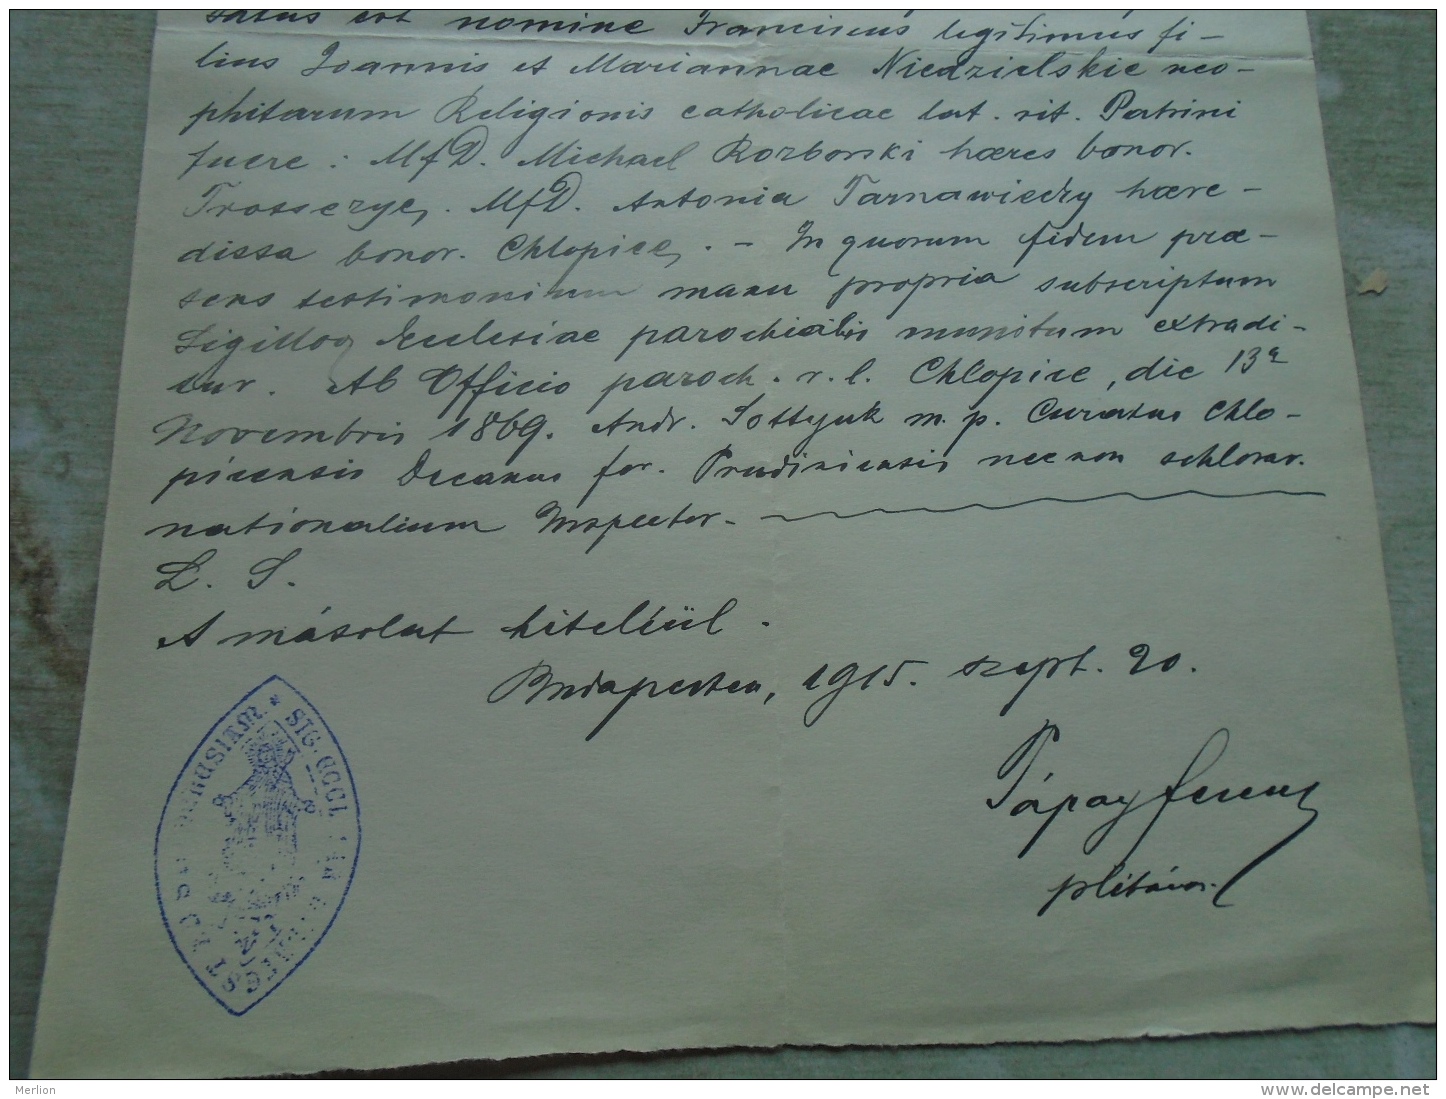 satus est nomine Franciscus legitimus fi-
lius Joannis et Mariannae Niedzielskie neo-
phitarum Religionis catholicae lat. rit. Patrini
fuere: MfD. Michael Rozborski haeres bonor.
MfD. Antonia Tarnawiecky haere-
dissa bonor. Chlopice. - In quorum fidem prae-
sens testimonium manu propria subscriptum
Sigilloq Ecclesiae parochialis munitum extradi-
tur. Ab Officio paroch. r. l. Chlopice, die 13a
Novembris 1869. Andr. m. p. Curatus Chlo-
picensis Decanus for. necnon scholar.
nationalium Inspector.
L. S.
A másolat hiteléül.
Budapesten, 1915. szept. 20.
Pápay Ferenc
plébános.
SIG. ECCL.
Merlion
www.delcampe.net